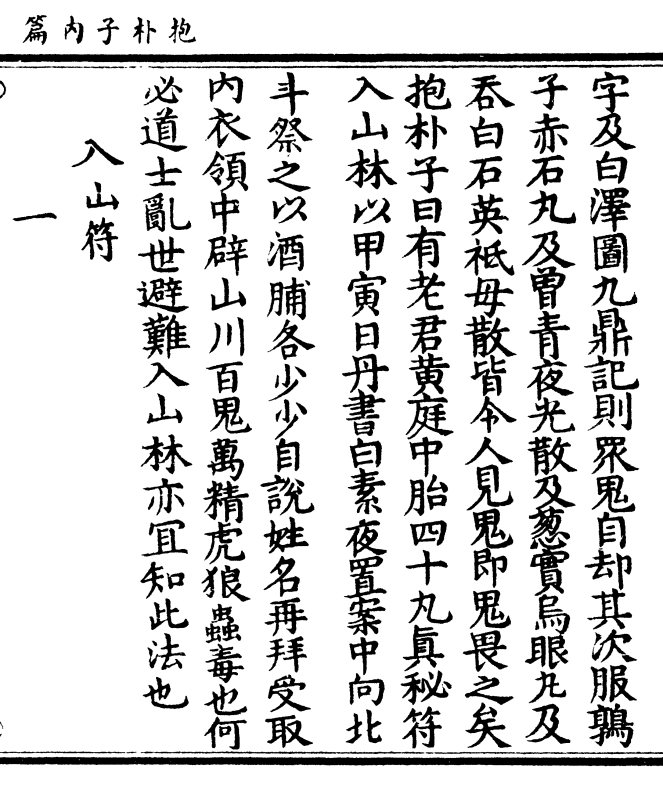 抱朴子內篇
字及白澤圖九鼎記則眾鬼自却其次服鶉
子赤石丸及曾青夜光散及葱實烏眼丸及
吞白石英祗母散皆令人見鬼即鬼畏之矣
抱朴子曰有老君黃庭中胎四十九眞秘符
入山林以甲寅日丹書白素夜置案中向北
斗祭之以酒脯各少少自說姓名再拜受取
內衣領中辟山川百鬼萬精虎狼蟲毒也何
必道士亂世避難入山林亦宜知此法也
入山符
一